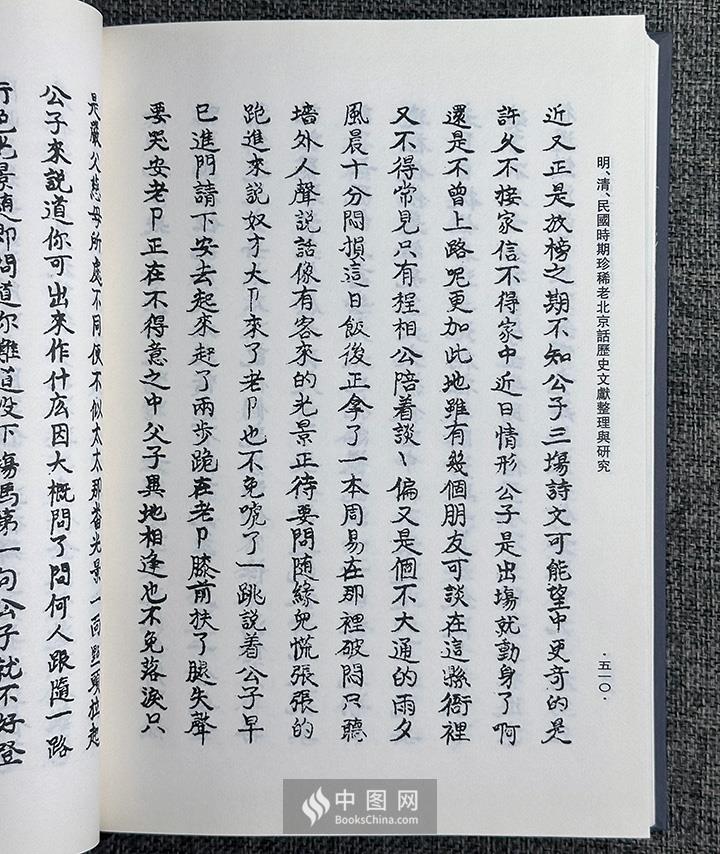 明、清、民國時期珍稀老北京話歷史文獻整理與研究
·五一〇·
近又正是放榜之期不知公子三塲詩文可能望中更奇的是
許久不接家信不得家中近日情形公子是出塲就動身了啊
還是不曾上路呢更加此地雖有幾個朋友可談在這縣衙裡
又不得常見只有程相公陪着談丶偏又是個不大通的雨夕
風晨十分悶損這日飯後正拿了一本周易在那裡破悶只聽
墻外人聲説話像有客來的光景正待要問隨緣兒慌張張的
跑進來説奴才大卩來了老卩也不免唬了一跳説着公子早
已進門請下安去起來趕了兩歩跪在老卩膝前扶了腿失聲
要哭安老卩正在不得意之中父子異地相逢也不免落淚只
是嚴父慈母所處不同便不似太太那畨光景一面
公子來説道你可出來作什庅因大概問了問何人跟隨一路
行色光景随即問道你難道没下塲馬第一句公子就不好登
中图网
BooksChina.com